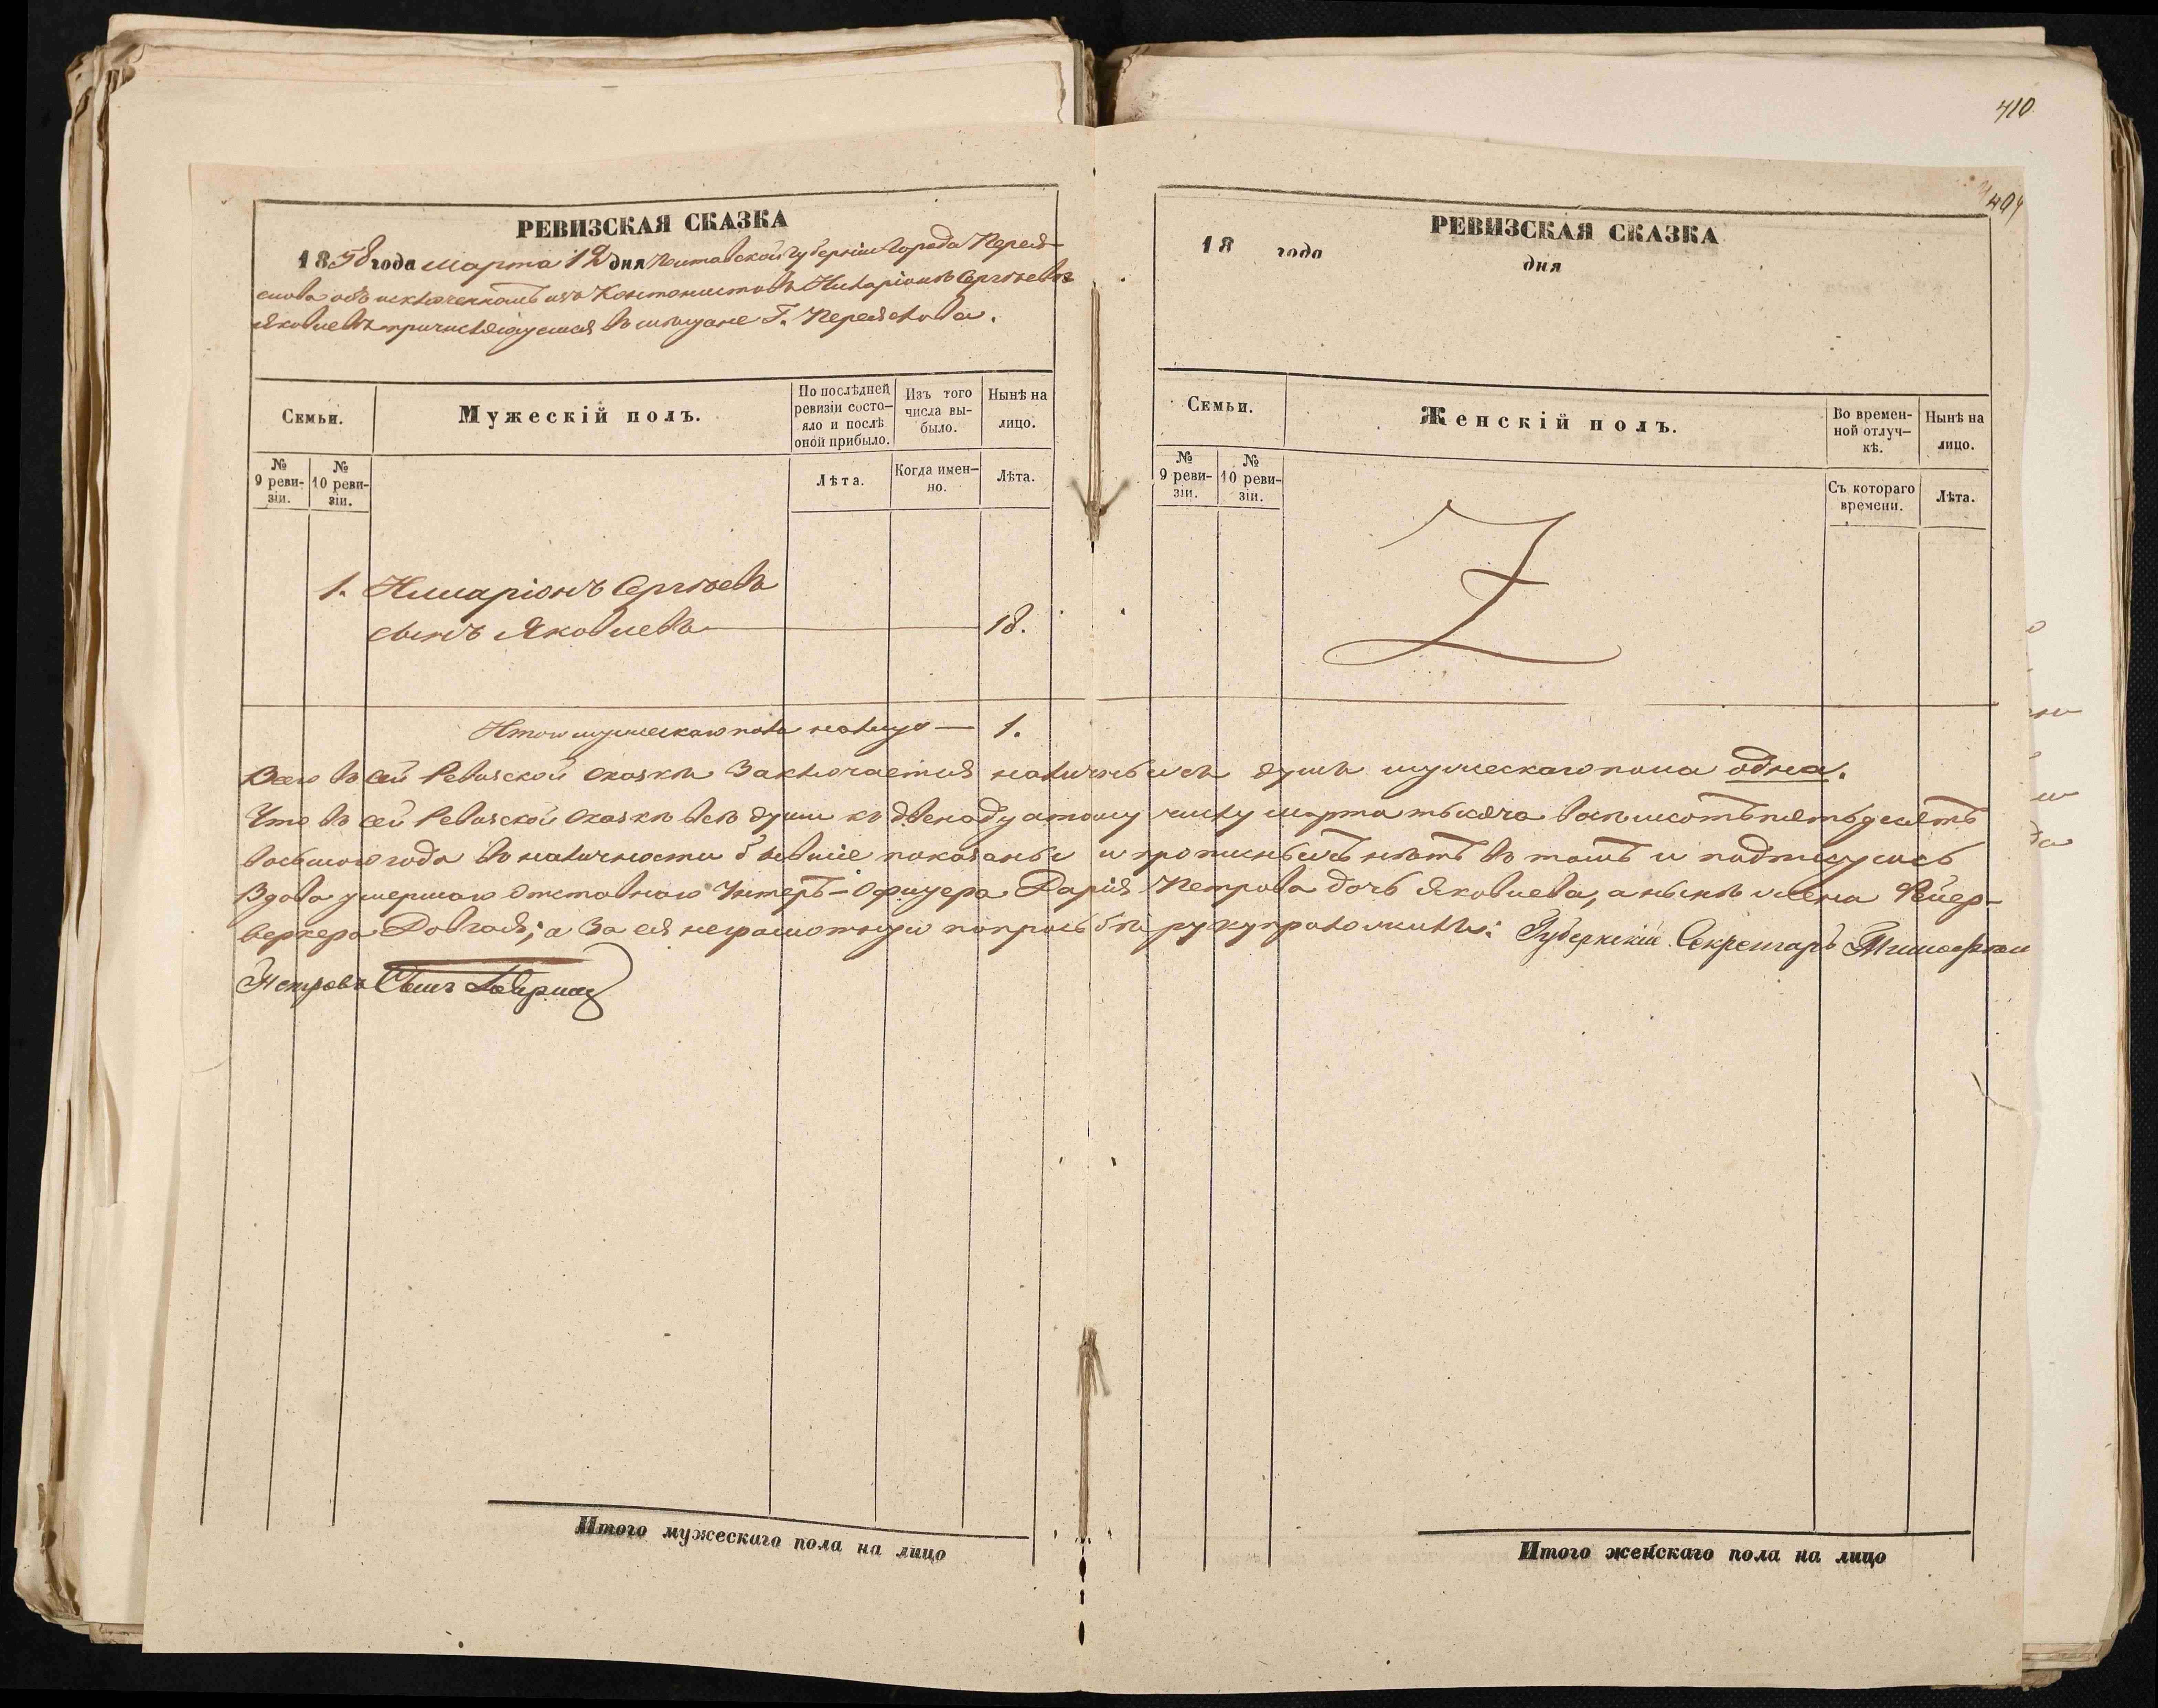 410.
409
РЕВИЗСКАЯ СКАЗКА
1858 года марта 12 дня Полтавской Губерніи Города Перея-
слова объ исключенномъ изъ Кантонистовъ Иларіонъ Сергѣевъ
Яковлевъ причисляющемся въ мѣщане Г. Переяслова.
Семьи.
Мужескій полъ.
По послѣдней ревизіи состо-
яло и послѣ оной прибыло.
Изъ того числа вы-
было.
Нынѣ на лицо.
№ 9 реви-
зіи.
№ 10 реви-
зіи.
Лѣта.
Когда имен-
но.
Лѣта.
1. Иларіонъ Сергѣевъ
сынъ Яковлевъ 18.
Итого мужескаго пола налицо — 1.
РЕВИЗСКАЯ СКАЗКА
18 года дня
Семьи.
Женскій полъ.
Во времен-
ной отлуч-
кѣ.
Нынѣ на лицо.
№ 9 реви-
зіи.
№ 10 реви-
зіи.
Съ котораго времени.
Лѣта.
Всего въ сей Ревизской сказкѣ заключается наличныхъ душъ мужескаго пола одна.
Что въ сей Ревизской сказкѣ всѣ души къ двенадцатому числу марта тысяча восемьсотъ пятьдесятъ
восьмого года въ наличности бывшіе показаны и прописныхъ нѣтъ въ томъ и подписуюсь
Вдова умершаго отставного Унтеръ-Офицера Дарія Петрова дочь Яковлева, а нынѣ жена Фейер-
веркера Довгаля; а за ея неграмотную по просьбѣ руку приложилъ: Губернскій Секретарь Тимофей
Петровъ Сынъ
Итого мужескаго пола на лицо
Итого женскаго пола на лицо